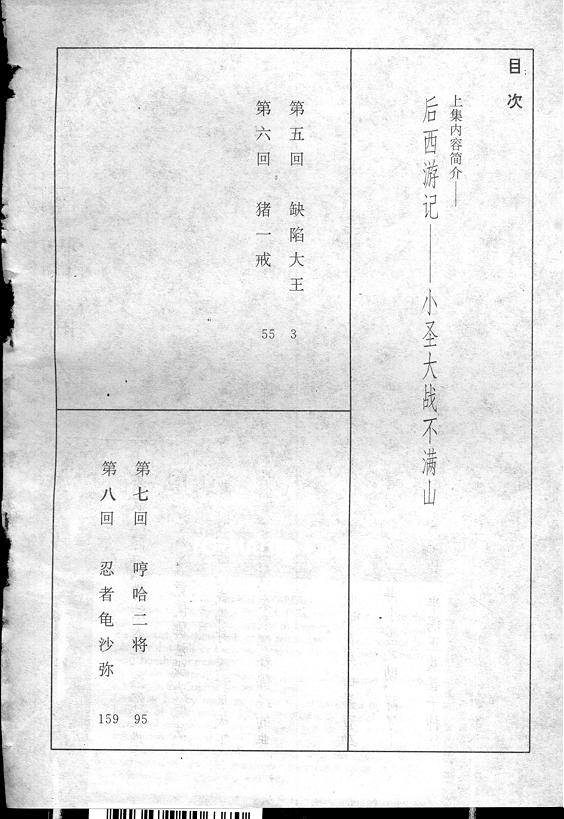 目次
上集内容简介——
后西游记——小圣大战不满山
第五回 缺陷大王 3
第六回 猪一戒 55
第七回 哼哈二将 95
第八回 忍者龟沙弥 159